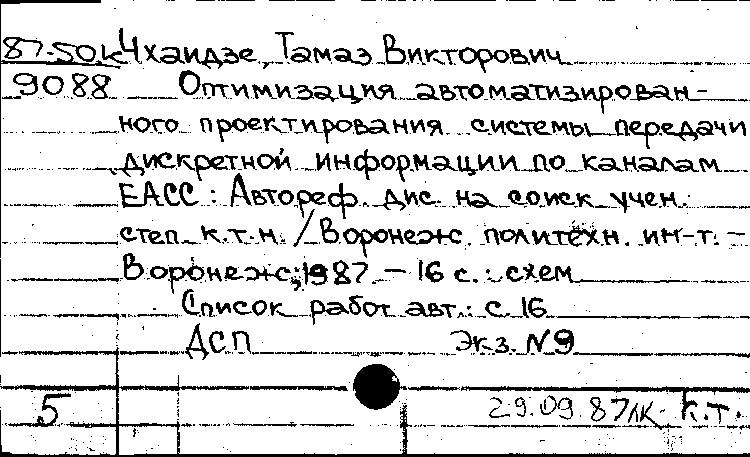 87-50к Чхаидзе, Тамаз Викторович
9088 Оптимизация автоматизирован-
ного проектирования системы передачи
дискретной информации по каналам
ЕАСС : Автореф. дис. на соиск учен.
степ. к.т.н. / Воронеж. политехн. ин-т. –
Воронеж, 1987. – 16 с. : схем
Список работ авт.: с. 16
ДСП Экз. №9
5 29.09.87лк. к.т.